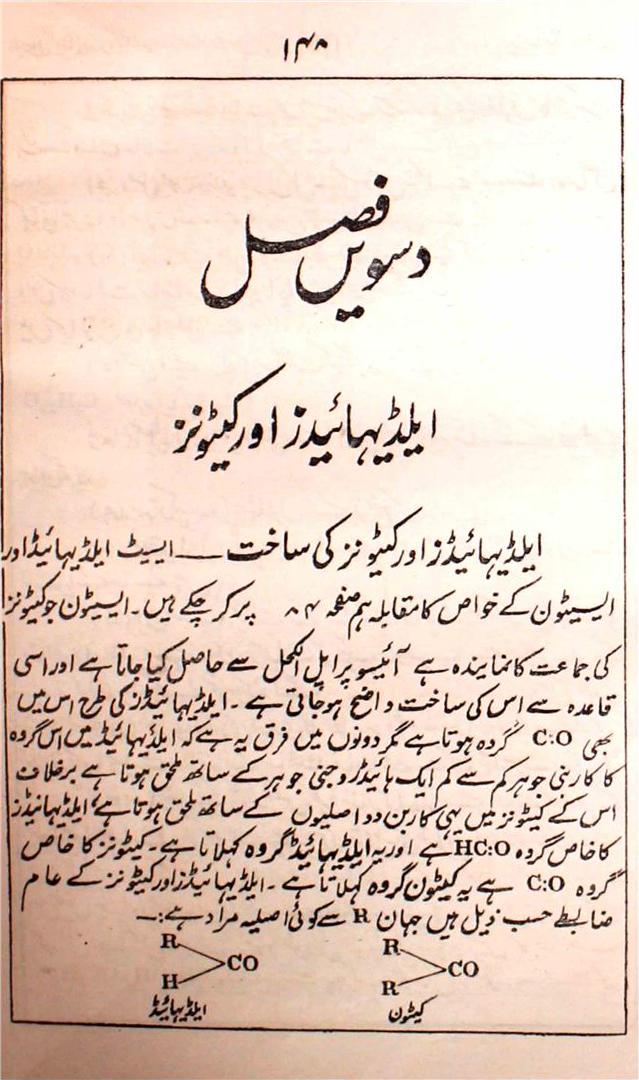 ۱۴۸
دسویں فصل
ایلڈیہائیدز اور کیٹونز
ایلڈیہائیڈز اور کیٹونز کی ساخت ـــــ ایسیٹ ایلڈیہائیڈ اور
ایسیٹون کے خواص کا مقابلہ ہم صفحہ ۸۴ پر کر چکے ہیں۔ ایسیٹون جو کیٹونز
کی جماعت کا نمایندہ ہے آئیسو پراپل الکحل سے حاصل کیا جاتا ہے اور اسی
قاعدہ سے اس کی ساخت واضح ہوجاتی ہے۔ ایلڈیہائیڈز کی طرح اس میں
بھی C:O گروہ ہوتا ہے مگر دونوں میں فرق یہ ہے کہ ایلڈیہائیڈ میں اس گروہ
کا کاربنی جوہر کم سے کم ایک ہائیڈروجنی جوہر کے ساتھ ملحق ہوتا ہے برخلاف
اس کے کیٹونز میں یہی کاربن دو اصلیوں کے ساتھ ملحق ہوتا ہے، ایلڈیہائیڈز
کا خاص گروہ HC:O ہے اور یہ ایلڈیہائیڈ گروہ کہلاتا ہے۔ کیٹونز کا خاص
گروہ C:O ہے یہ کیٹون گروہ کہلاتا ہے۔ ایلڈیہائیڈز اور کیٹونز کے عام
ضابطے حسب ذیل ہیں جہان R سے کوئی اصلیہ مراد ہے:ـــ
R R
CO CO
H R
ایلڈیہائیڈ کیٹون